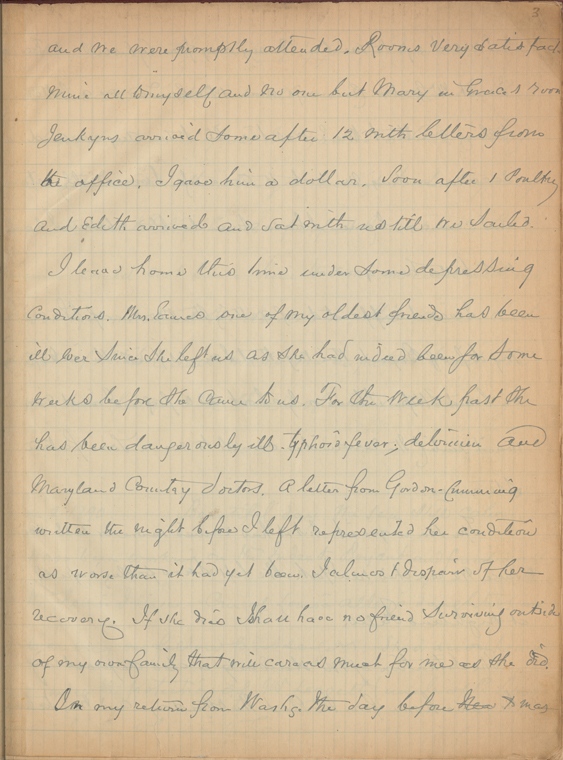 3
and we were promptly attended. Rooms very satisfact.
mine all to myself and no one but Mary in Grace's room
Jenkyns arrived some after 12 with letters from
the office. I gave him a dollar. Soon after 1 Poultney
and Edith arrived and sat with us till we sailed.
I leave home this time under some depressing
conditions. Mrs. one of my oldest friends has been
ill ever since she left us as she had indeed been for some
weeks before she came to us. For the week past she
has been dangerously ill. typhoid fever; delirium and
Maryland Country doctors. A letter from Gordon-Cumming
written the night before I left represented her condition
as worse than it had yet been. I almost despair of her
recovery. If she dies I shall have no friend surviving outside
of my own family that will care as much for me as she did.
On my return from Washg. the day before Xmas